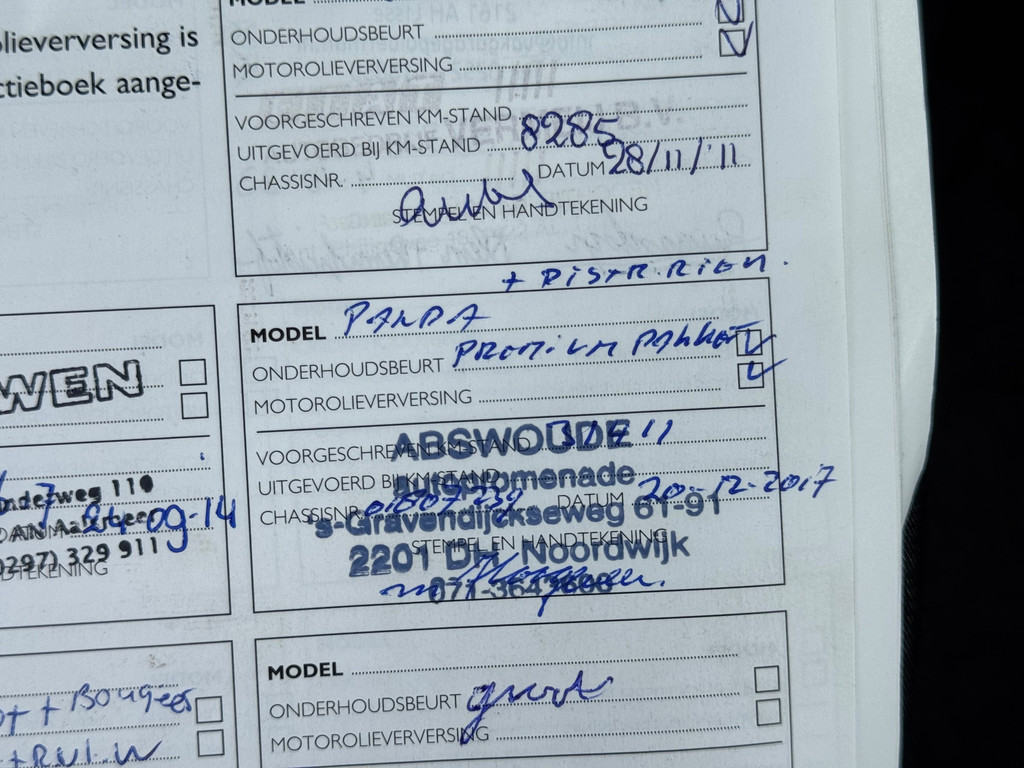 olieverversing is
ctieboek aange-
MODEL
ONDERHOUDSBEURT
MOTOROLIEVERVERSING
VOORGESCHREVEN KM-STAND
UITGEVOERD BIJ KM-STAND 8285
CHASSISNR. DATUM 28/11/'11
STEMPEL EN HANDTEKENING
WEN
110
24-09-14
0297) 329 911
DTEKENING
+ DISTR. RIEM.
MODEL PANDA
ONDERHOUDSBEURT PREMIUM PAKKET
MOTOROLIEVERVERSING
ABSWOUDE
VOORGESCHREVEN KM-STAND
UITGEVOERD BIJ KM-STAND
CHASSISNR. DATUM 20-12-2017
's-Gravendijckseweg 61-91
STEMPEL EN HANDTEKENING
2201 Noordwijk
+ Bougees
MODEL
ONDERHOUDSBEURT groot
MOTOROLIEVERVERSING